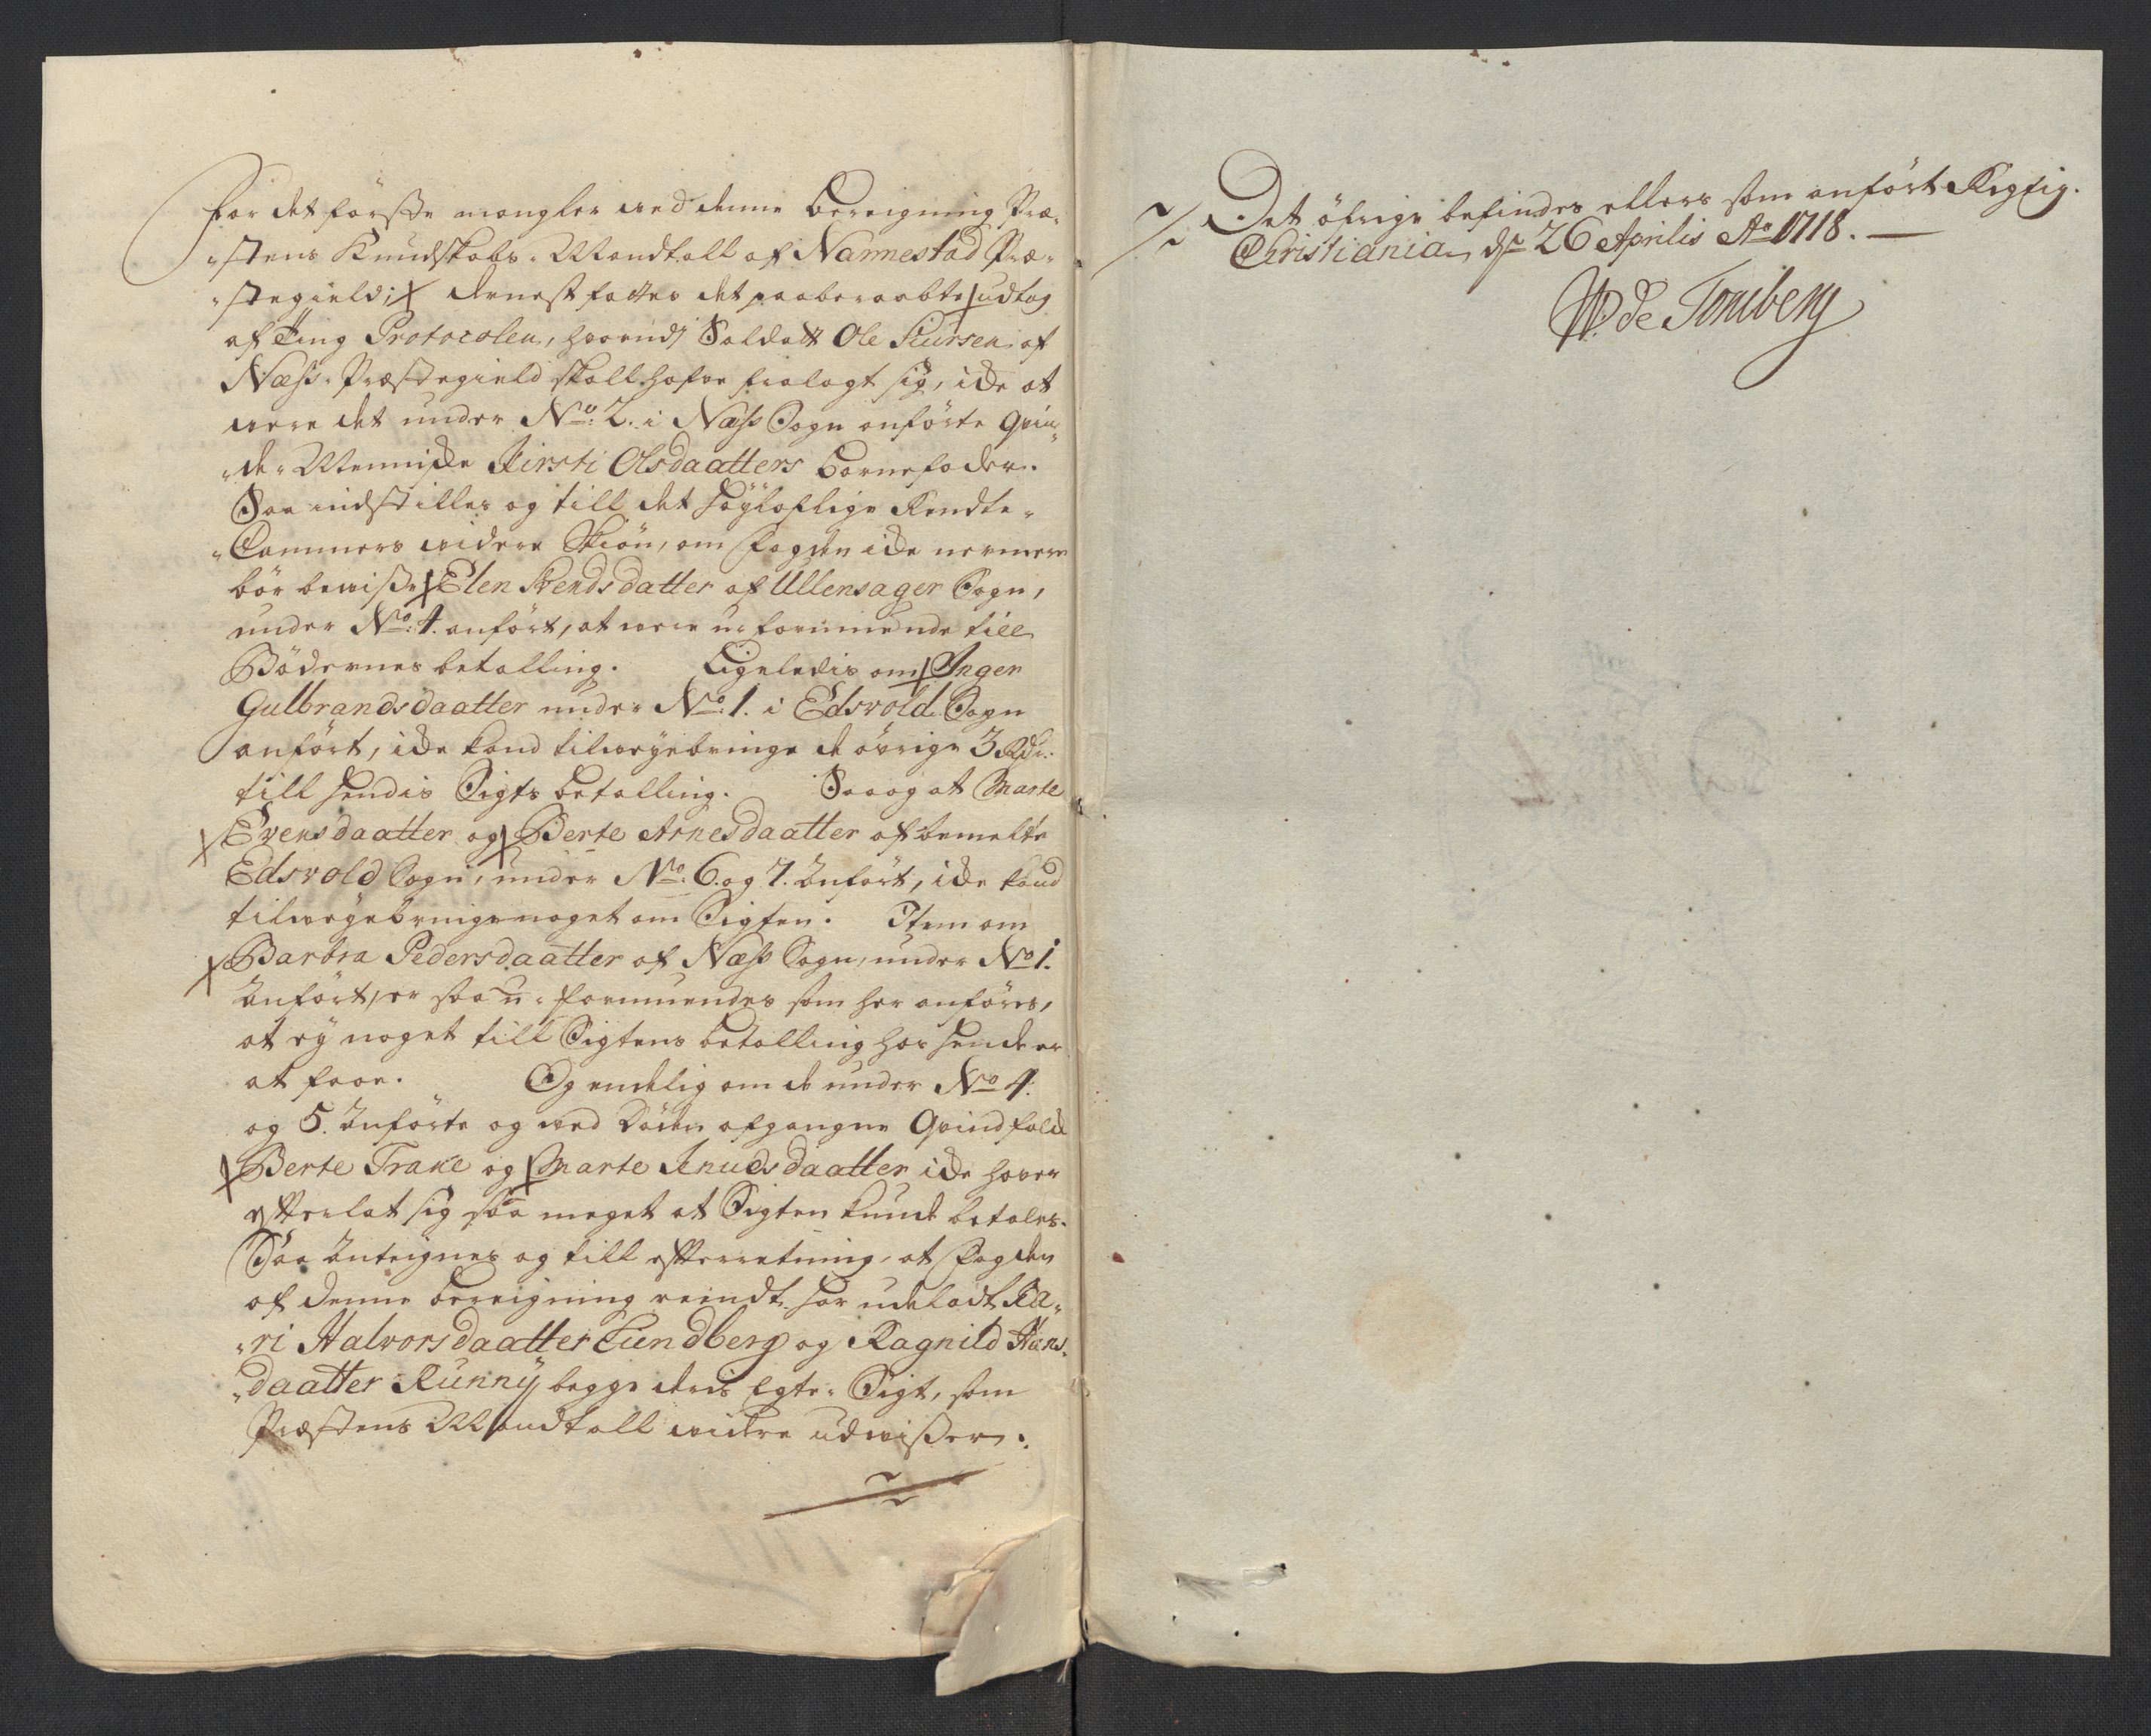 For det förste mangler ved denne bereigning Præ-
-stens Kundskabs-Mandtall af Nannestad Præ-
-stegield; dernest fattes det paaberaabte udtog
af Ting Protocolen, hvorudj Soldatt Ole Siursen af
Næss-Præstegield skall hafve fralagt sig, icke at
være det under No: 2. i Næss Sogn anförte Qvin-
-de-Menniske Kirsti Olsdaatters barnefader.
Saa indstilles og till det höyloflige Rendte-
-Cammers videre Skiön, om Fogden icke nermere
bör bevisse Elen Svendsdatter af Ullensager Sogn,
under No: 4. anfört, at være u-formuende till
Bödernes betalling. Ligeledis om Inger
Gulbrandsdaatter under No: 1. i Edsvold Sogn
anfört, icke kand tilveyebringe de övrige 3 Rdr.
till hendis Sigts betalling. Saa og at Marte
Evensdaatter og Berte Arnesdaatter af bemelte
Edsvold Sogn, under No: 6. og 7. anfört, icke kand
tilveyebringe noget om Sigten. Item om
Barbra Pedersdaatter af Næss Sogn, under No 1.
anfört, er saa u-formuendes som her anföres,
at ey noget till Sigtens betalling hos hende er
at faae. Og endelig om de under No 4.
og 5. anförte og ved Döden afgangne Qvindfolck
Berte Trane og Marte Knudsdaatter icke haver
efterlat sig saa meget at Sigten kunde betales.
Saa anteignes og till efterretning, at Fogden
af denne bereigning reindt har udeladt Ka-
-ri Halvorsdaatter Lundberg og Ragnild Hans-
-daatter Runny, begge deris Egte-Sigt, som
Præstens Mandtall videre udvisser.
Det öfrige befindes ellers som anfört Rigtig.
Christiania dn 26 Aprilis Ao 1718.
WP. de Tonsberg